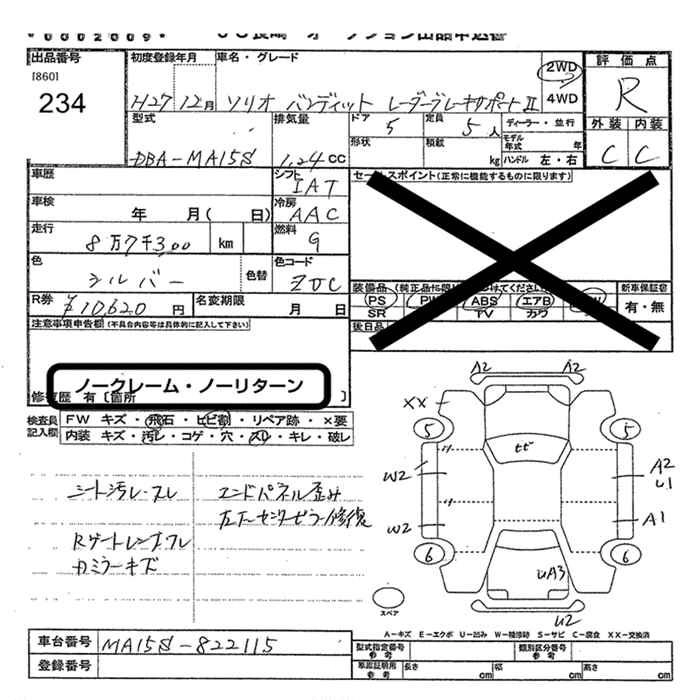 *0002009*
JU長崎 オークション出品申込書
出品番号
[860]
234
初度登録年月
H27 12月
車名・グレード
ソリオ バンディット レーダーブレーキサポートⅡ
2WD
4WD
評価点
R
外装 内装
C C
型式
DBA-MA15S
排気量
1.24 CC
ドア
5
定員
5人
ディーラー・並行
形状
積載
kg
モデル年式
年
ハンドル 左・右
車歴
シフト
IAT
セールスポイント(正常に機能するものに限ります)
車検
年 月( 日)
冷房
AAC
走行
8万7千300 km
燃料
G
色
シルバー
色替
色コード
ZUC
装備品(純正品に限り
けてください)
新車保証書
PS PW ABS エアB
SR TV カワ
有・無
後日品
R券
¥10,620円
名変期限
月 日
注意事項申告欄(不具合内容等は具体的に記入して下さい)
ノークレーム・ノーリターン
修復歴 有 [箇所 ]
検査員記入欄
FW キズ・飛石・ヒビ割・リペア跡・×要
内装 キズ・汚レ・コゲ・穴・スレ・キレ・破レ
シート汚レ・スレ
エンドパネル歪み
左右センターピラー修復
Rゲートレンズスレ
カミラーキズ
A2 A2
XX
5 5
ヒビ
W2
A2
U1
W2
A1
6 6
UA3
U2
スペア
A-キズ E-エクボ U-凹み W-補修跡 S-サビ C-腐食 XX-交換済
車台番号
MA15S-822115
登録番号
型式指定番号
参考
類別区分番号
参考
車庫証明用
参考
長さ cm 幅 cm 高さ cm